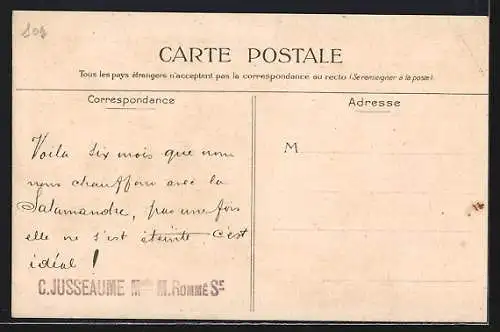 CARTE POSTALE
Tous les pays étrangers n'acceptent pas la correspondance au recto (Se renseigner à la poste).
Correspondance
Adresse
Voilà six mois que nous
nous chauffons avec la
Salamandre, pas une fois
elle ne s'est éteinte c'est
idéal !
M
C. JUSSEAUME M. ROMMÉ Sr